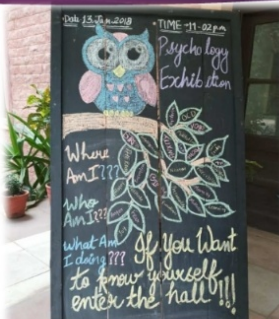 Date 13 Jan 2018
TIME - 11-02 p.m
Psychology
Exhibition
Where
Am I???
Who
Am I???
What Am
I doing???
If You Want
to know yourself
enter the hall!!!